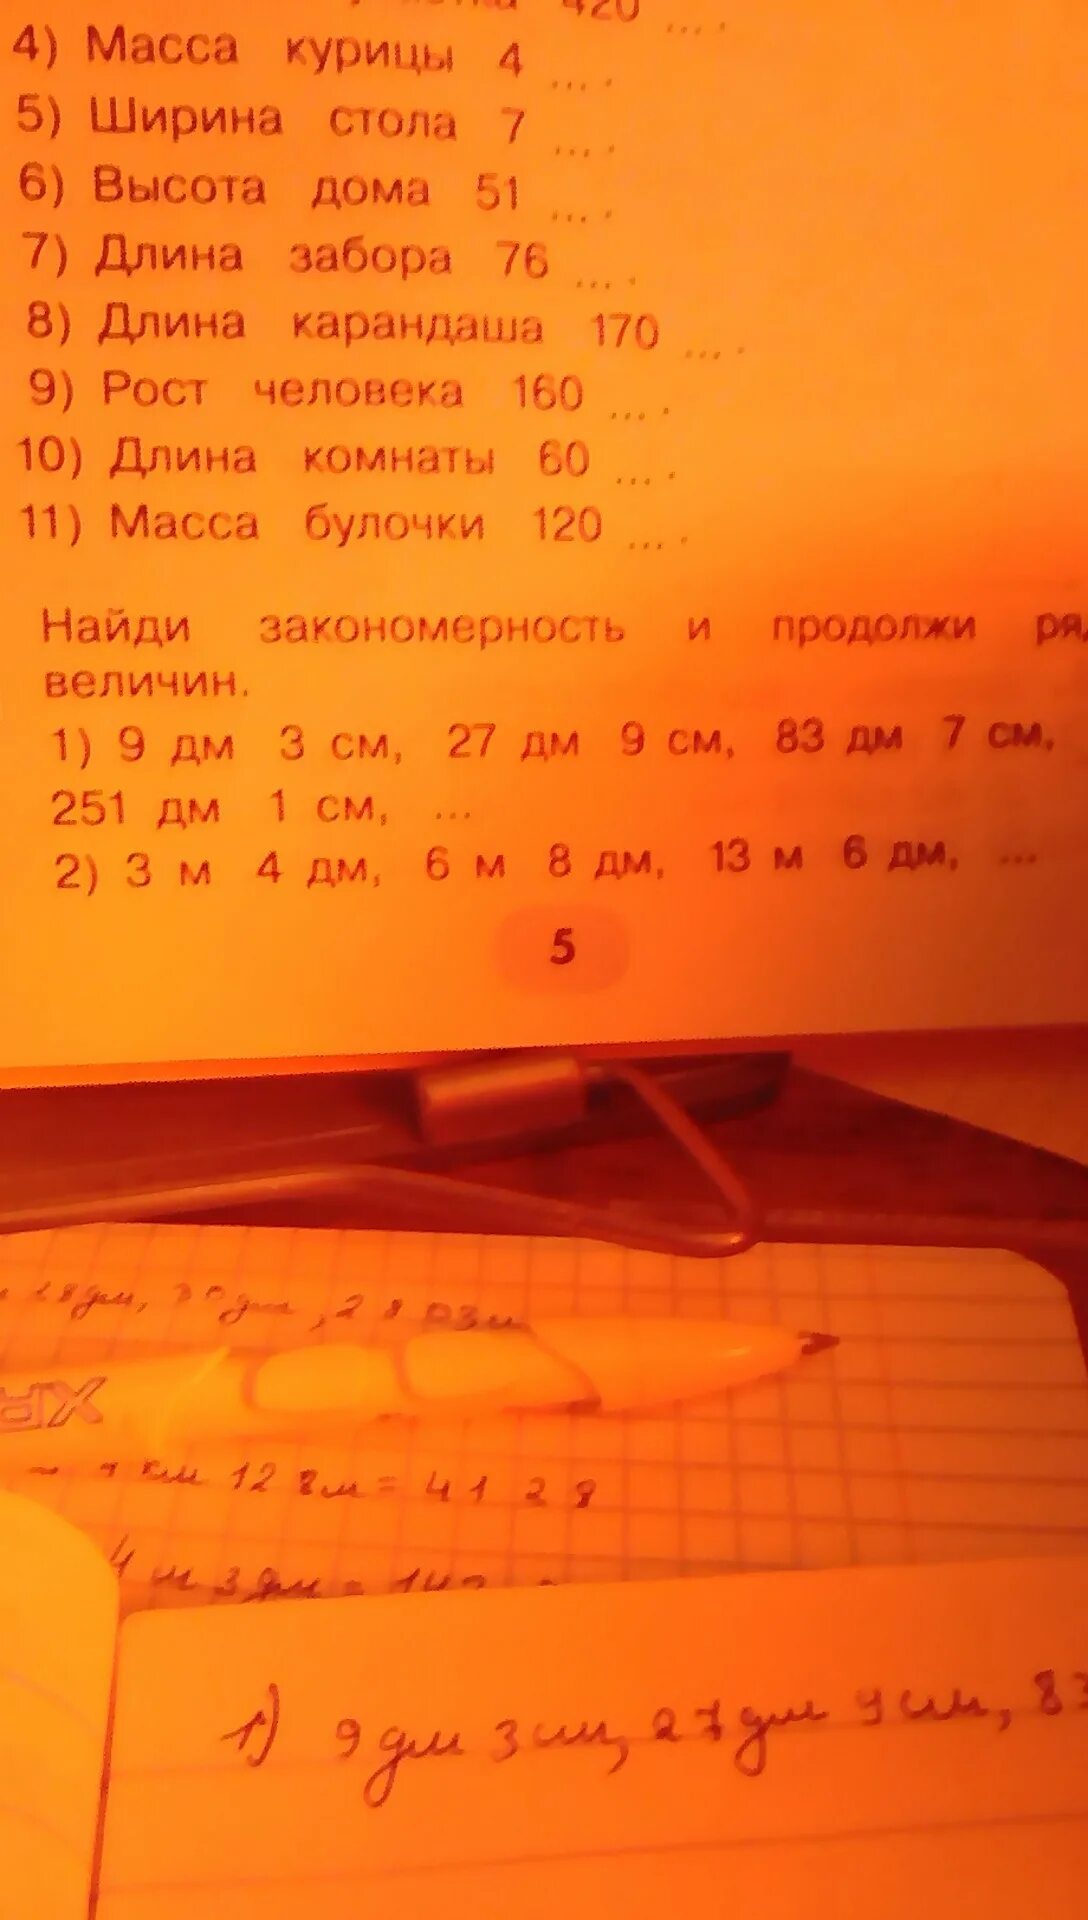 420 ... .
4) Масса курицы 4 ... .
5) Ширина стола 7 ... .
6) Высота дома 51 ... .
7) Длина забора 76 ... .
8) Длина карандаша 170 ... .
9) Рост человека 160 ... .
10) Длина комнаты 60 ... .
11) Масса булочки 120 ... .
Найди закономерность и продолжи ря
величин.
1) 9 дм 3 см, 27 дм 9 см, 83 дм 7 см,
251 дм 1 см, ...
2) 3 м 4 дм, 6 м 8 дм, 13 м 6 дм, ...
5
км 12 дм = 41 2 д
4 м 3 дм =
1) 9 дм 3 см, 27 дм 9 см, 83